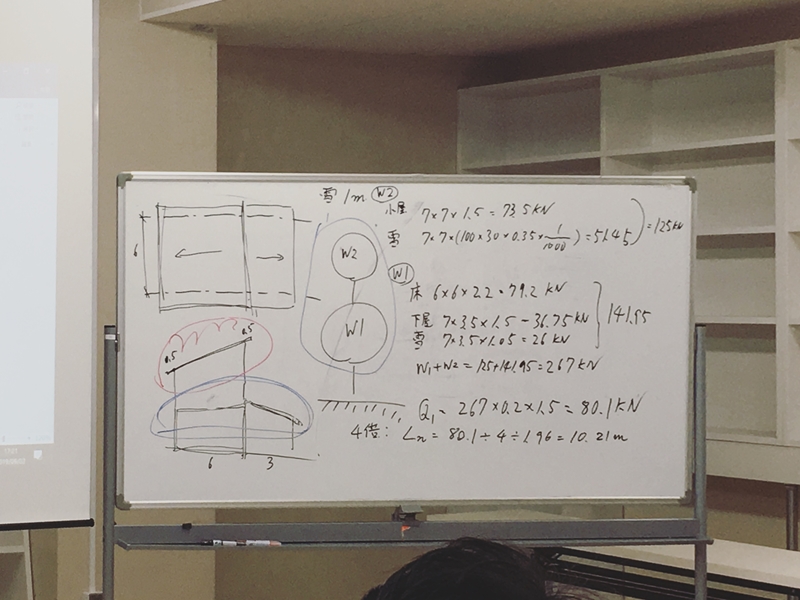 雪 1m W2
小屋 7×7×1.5=73.5KN
雪 7×7×(100×30×0.35×1/1000)=51.45
=125KN
W2
W1
W1
床 6×6×2.2=79.2 KN
下屋 7×3.5×1.5=36.75KN
雪 7×3.5×1.05=26KN
141.95
W1+W2=125+141.95=267KN
Q1=267×0.2×1.5=80.1KN
4倍: Ln=80.1÷4÷1.96=10.21m
6
0.5
0.5
6
3